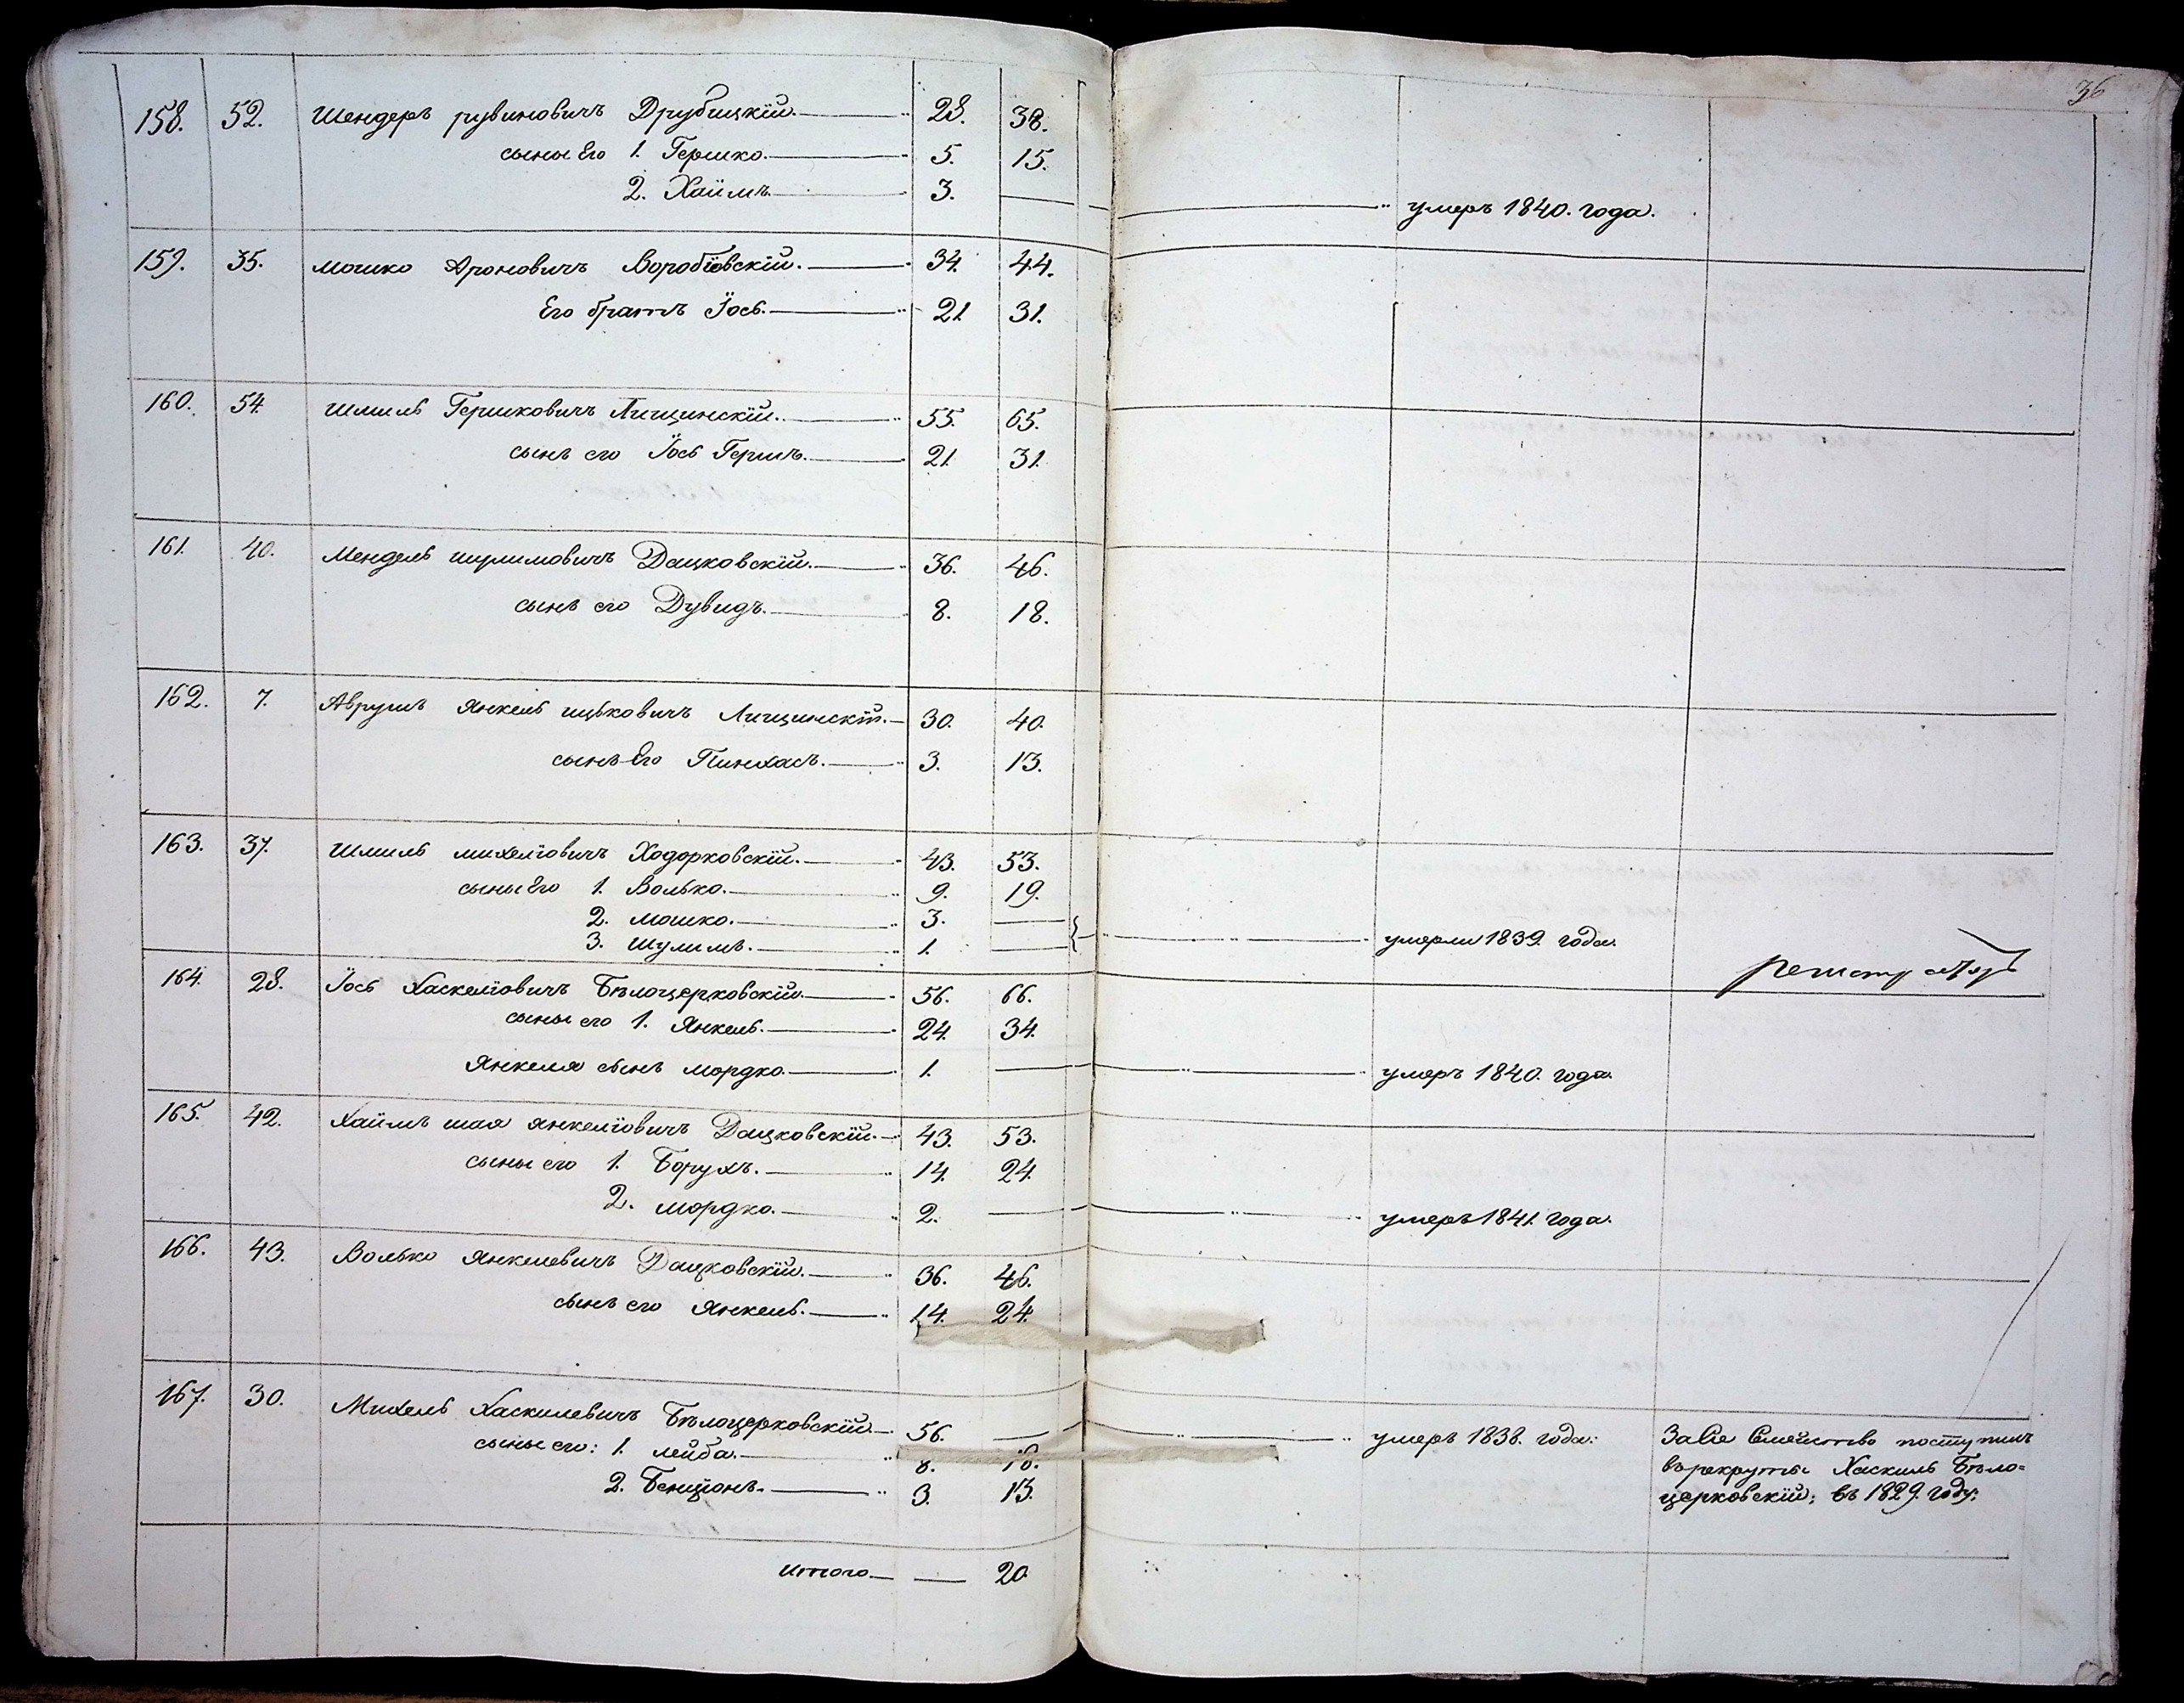 36
158. 52. Шендеръ рувиновичъ Друбицкій. 28. 38.
сыны Его 1. Гершко. 5. 15.
2. Хаимъ. 3. — умеръ 1840. года.
159. 35. мошко Ароновичъ Воробіовскій. 34. 44.
Его братъ Іось. 21. 31.
160. 54. Шмиль Гершковичъ Лищинскій. 55. 65.
сынъ его Іось Гершъ. 21. 31.
161. 40. Мендель Дацковскій. 36. 46.
сынъ его Дувидъ. 8. 18.
162. 7. Аврумъ Янкель ицьковичъ Лищинскій. 30. 40.
сынъ Его Пинхасъ. 3. 13.
163. 37. Шмиль михеліовичъ Ходорковскій. 43. 53.
сыны Его 1. Волько. 9. 19.
2. мошко. 3. —
3. Шулимъ. 1. — умерли 1839. года.
164. 28. Іось Хаскеліовичъ Бѣлоцерковскій. 56. 66.
сыны его 1. Янкель. 24. 34.
Янкеля сынъ мордко. 1. — умеръ 1840. года.
165. 42. Хаимъ шая янкеліовичъ Дацковскій. 43. 53.
сыны его 1. Борухъ. 14. 24.
2. мордко. 2. — умеръ 1841. года.
166. 43. Волько Янкелевичъ Дацковскій. 36. 46.
сынъ его Янкель. 14. 24.
167. 30. Михель Хаскилевичъ Бѣлоцерковскій 56. — умеръ 1838. года. За Сіе Семейство поступилъ
сыны его: 1. лейба. 8. 18. въ рекруты Хаскиль Бѣло=
2. Бенціонъ. 3. 13. церковскій; въ 1829. году;
итого — 20.